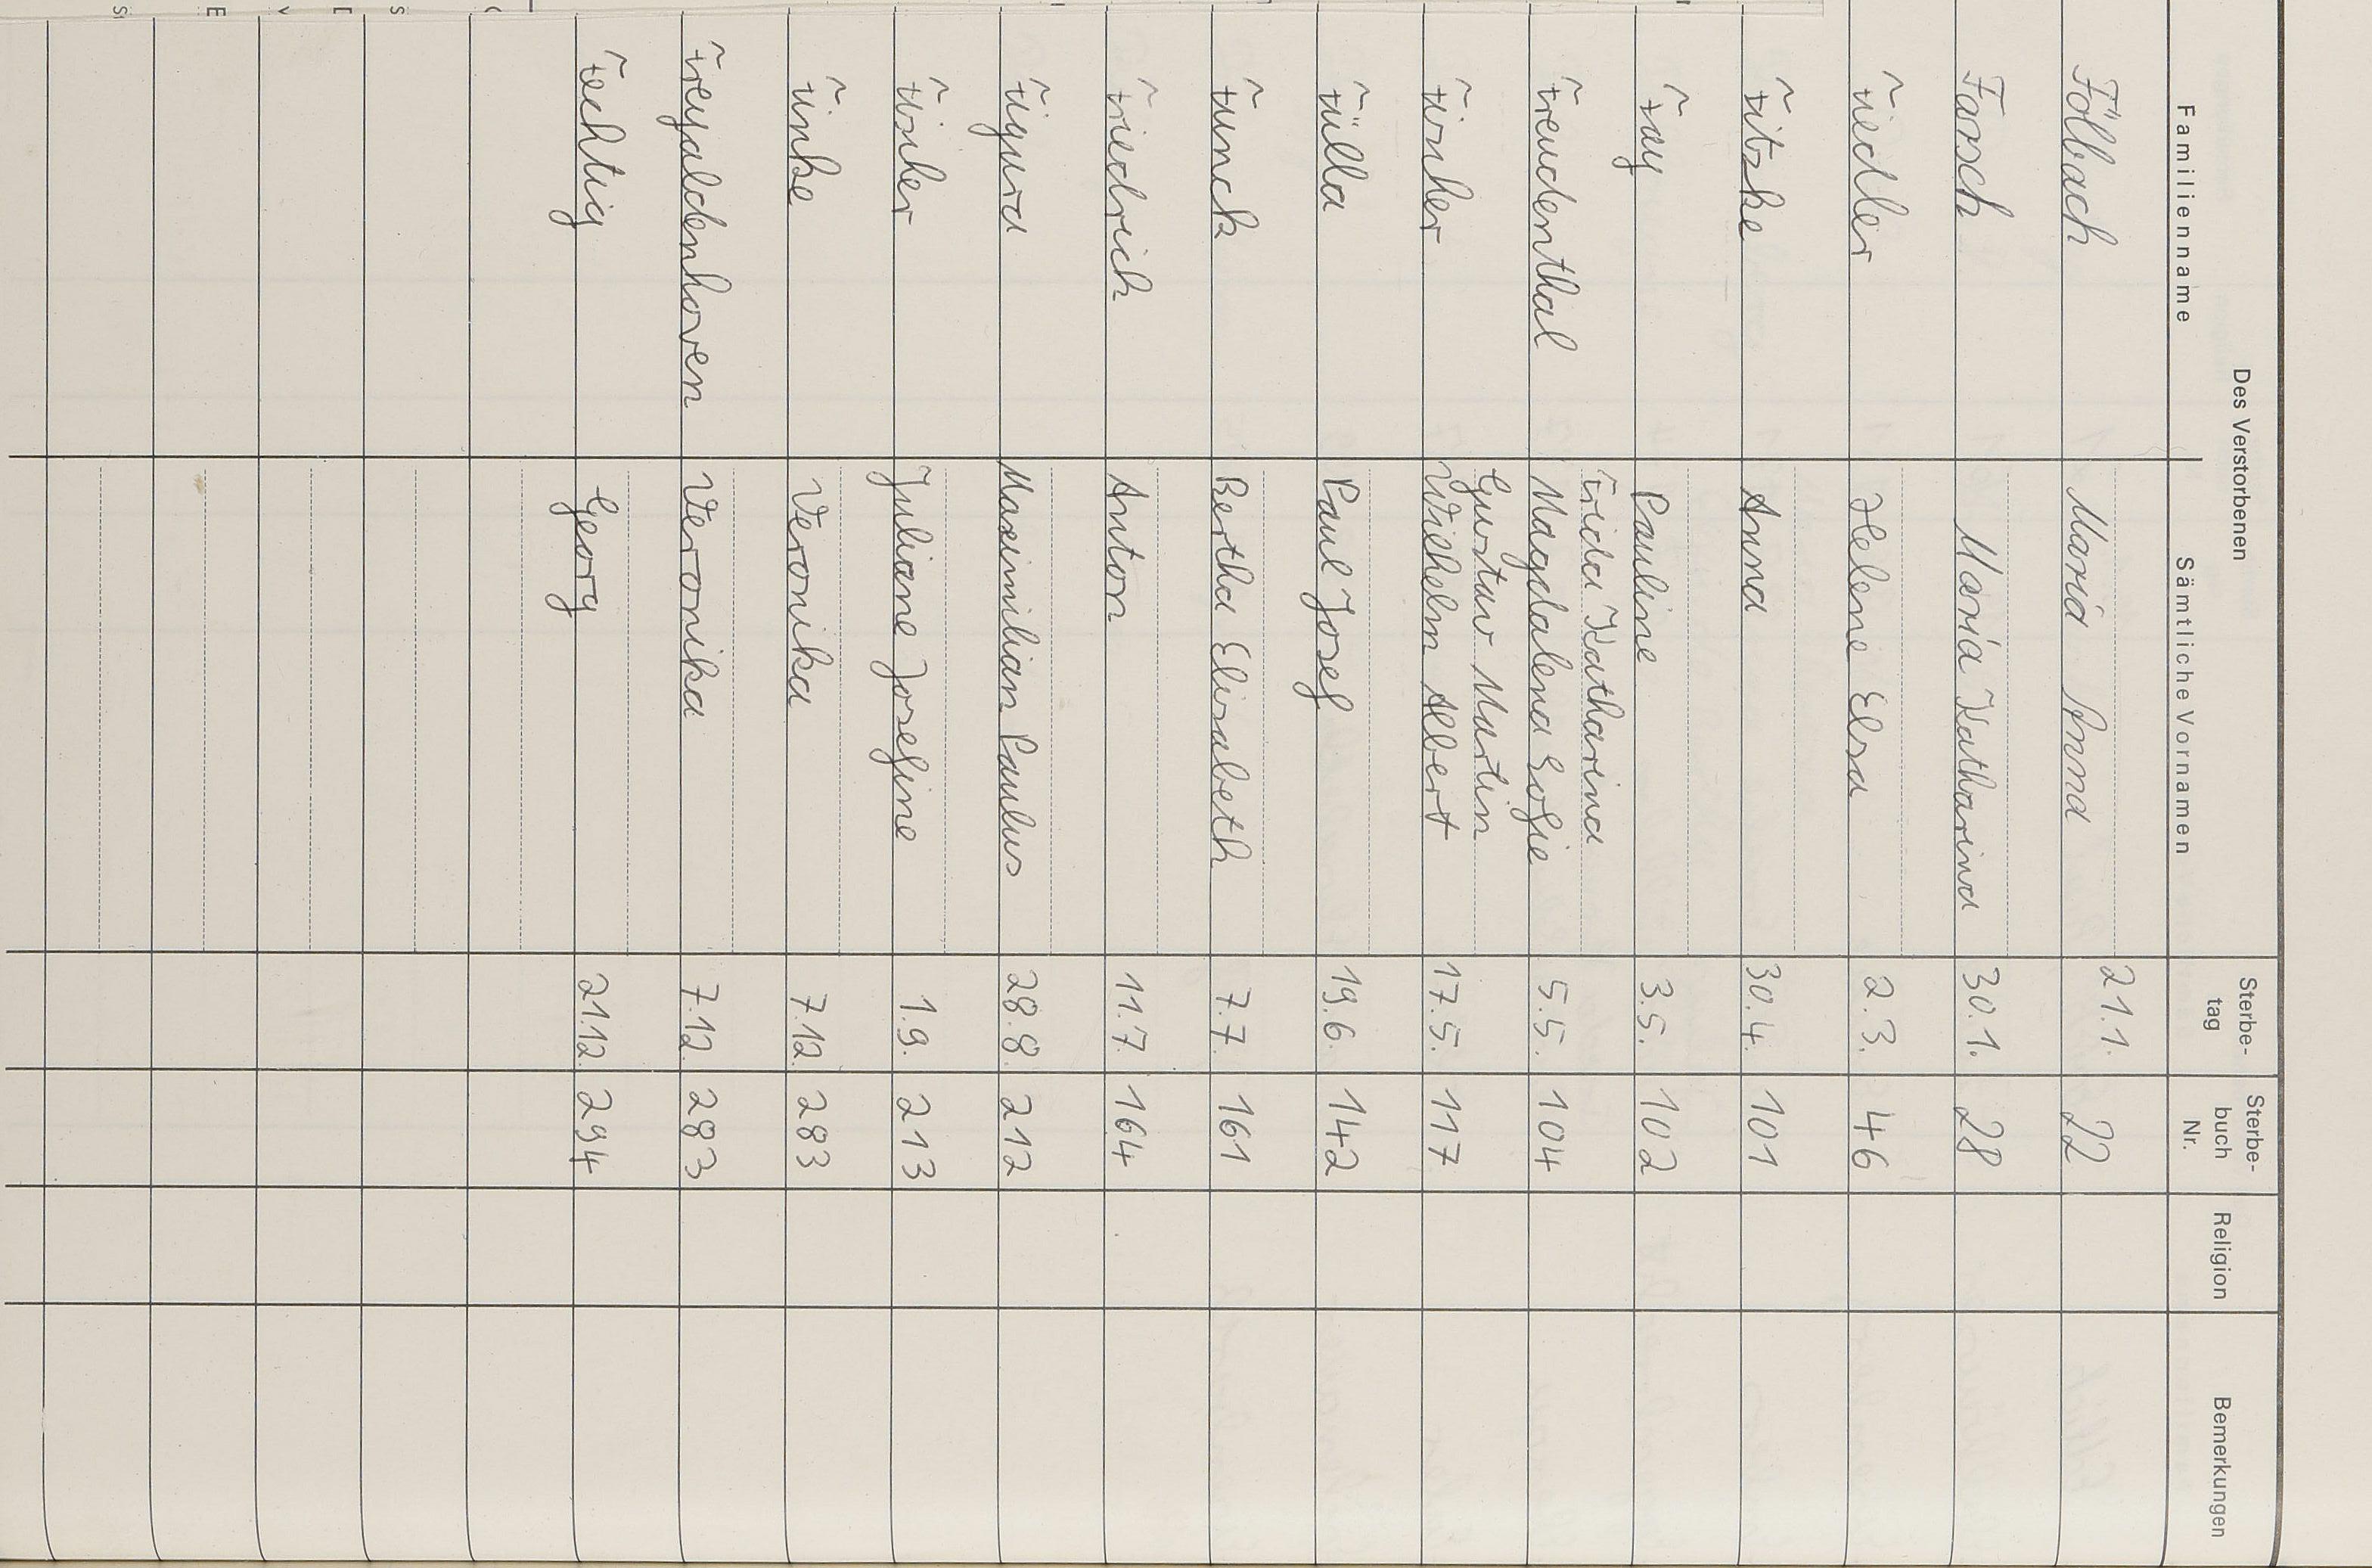 Des Verstorbenen
Familienname Sämtliche Vornamen Sterbe-tag Sterbe-buch Nr. Religion Bemerkungen
Fölbach Maria Anna 21.1. 22
Farsch Maria Katharina 30.1. 28
Fiedler Helene Elsa 2.3. 46
Fitzke Anna 30.4. 101
Fay Pauline 3.5. 102
Frida Katharina
Freudenthal Magdalena Sofie 5.5. 104
Gustav Martin
Fischer Wilhelm Albert 17.5. 117
Fülla Paul Josef 19.6. 142
Funck Bertha Elisabeth 7.7. 161
Friedrich Anton 11.7. 164
Figura Maximilian Paulus 28.8. 212
Fischer Juliane Josefine 1.9. 213
Finke Veronika 7.12. 283
Freyaldenhoven Veronika 7.12. 283
Fechtig Georg 21.12. 294